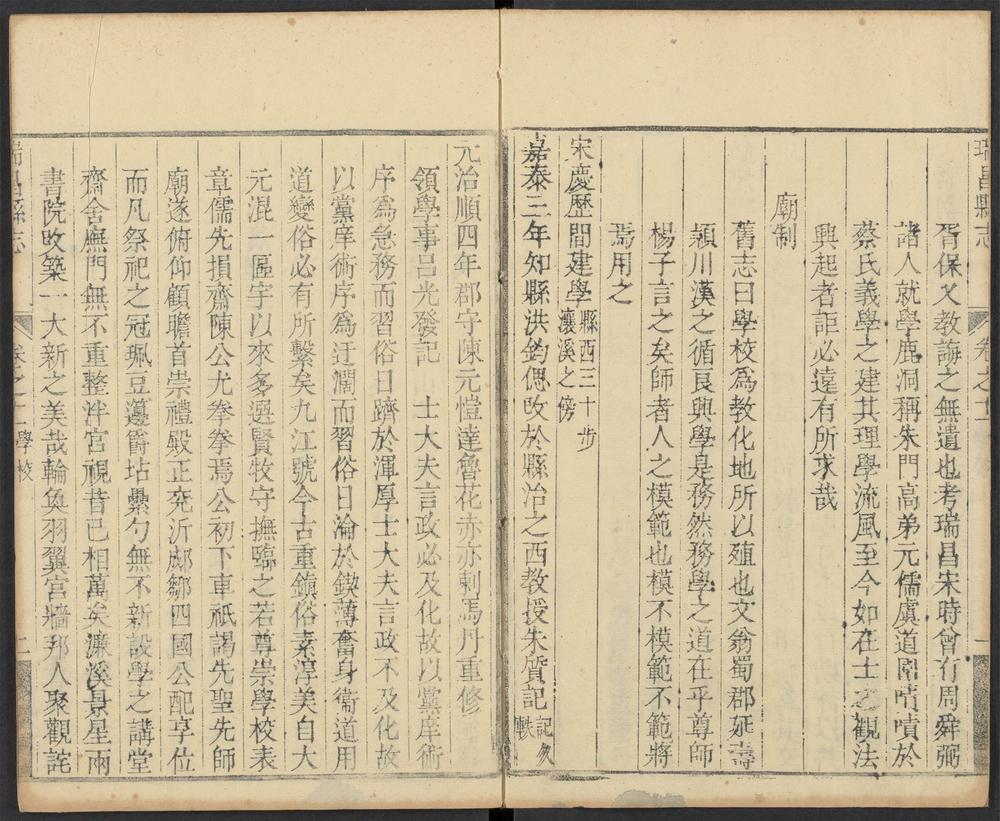 瑞昌縣志
卷之十一
一
胥保乂教誨之無遺也考瑞昌宋時曾有周舜弼
諸人就學鹿洞稱朱門高弟元儒虞道園嘖嘖於
蔡氏義學之建其理學流風至今如在士之觀法
興起者詎必遠有所求哉
廟制
舊志曰學校為教化地所以殖也文翁蜀郡延壽
潁川漢之循良興學是務然務學之道在乎尊師
楊子言之矣師者人之模範也模不模範不範將
焉用之
宋慶歷間建學縣西三十步瀼溪之傍
嘉泰三年知縣洪鈞偲改於縣冶之西教授朱質記記久軼
元治順四年郡守陳元愷達魯花赤亦剌馬丹重修
領學事呂光發記　士大夫言政必及化故以黨庠術
序為急務而習俗日躋於渾厚士大夫言政不及化故
以黨庠術序為迂濶而習俗日淪於鍥薄奮身衞道用
道變俗必有所繫矣九江號今古重鎮俗素淳美自大
元混一區宇以來多選賢牧守撫臨之若尊崇學校表
章儒先損齋陳公尤拳拳焉公初下車祇謁先聖先師
廟遂俯仰顧瞻首崇禮殿正兖沂郕鄒四國公配享位
而凡祭祀之冠珮豆籩爵坫罍勺無不新設學之講堂
齋舍廡門無不重整泮宮視昔已相萬矣濂溪景星兩
書院改築一大新之美哉輪奐羽翼宮牆邦人聚觀詫
瑞昌縣志
卷之十一學校
二